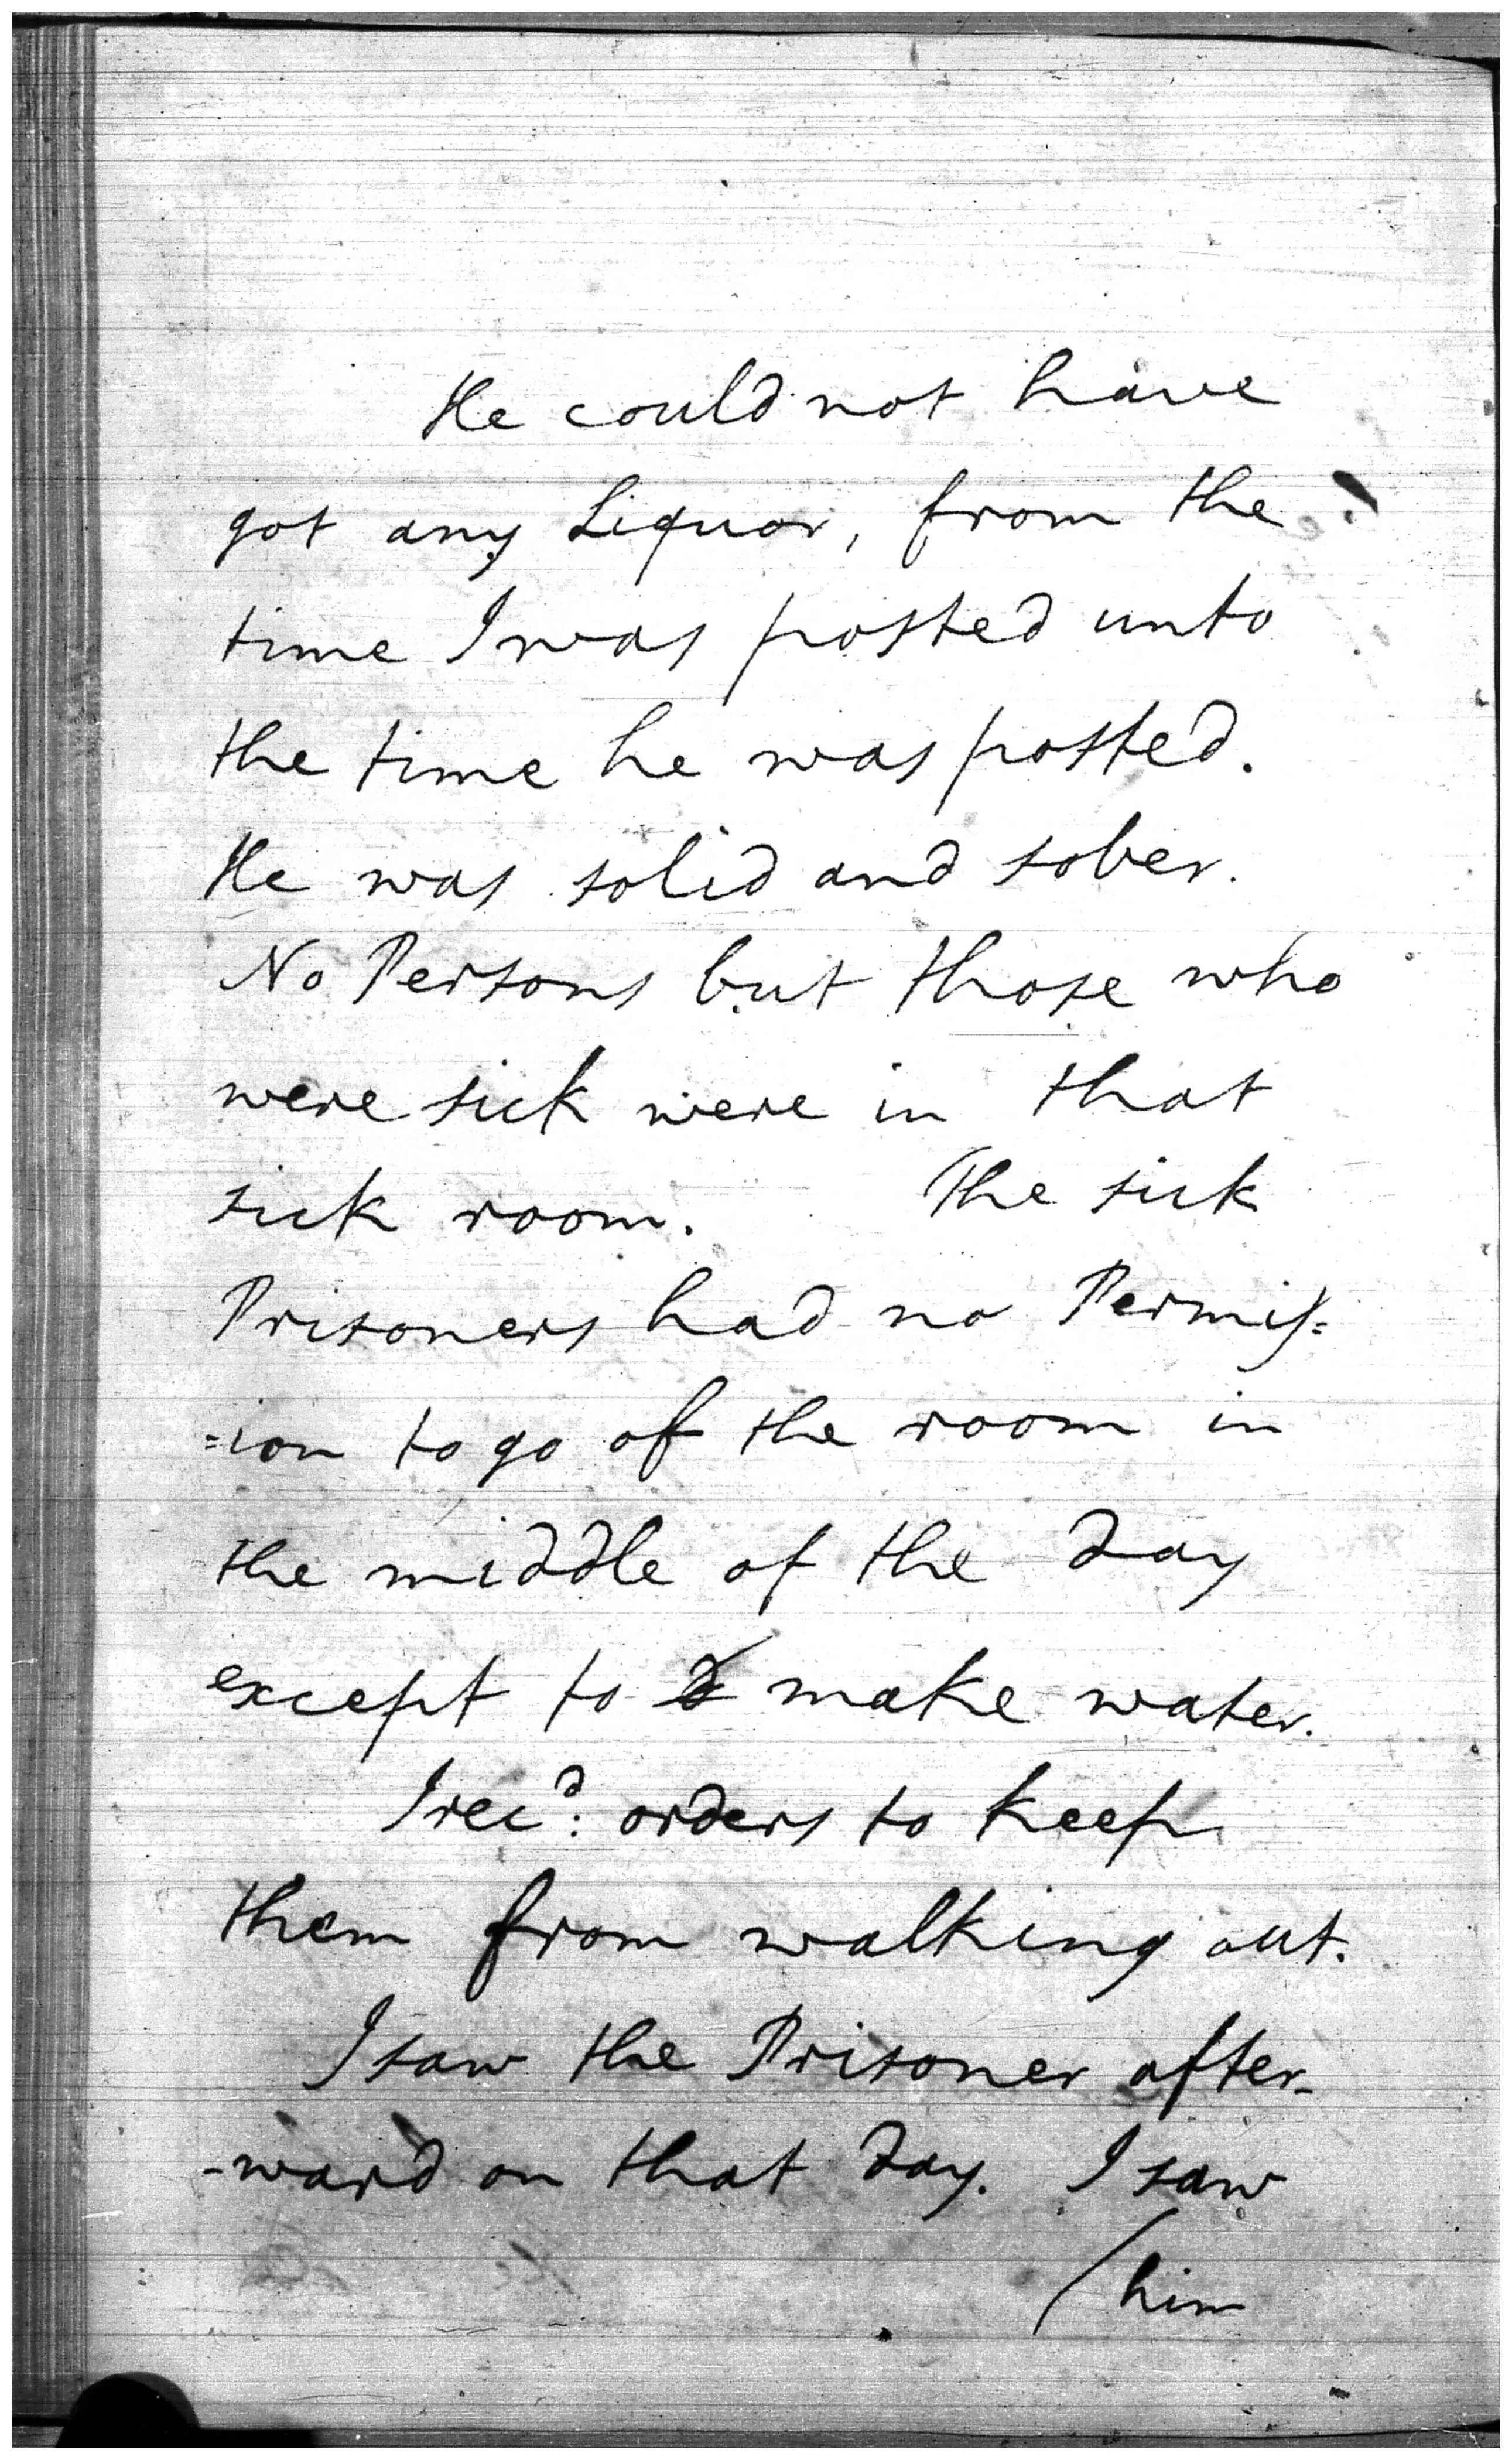 He could not have
got any Liquor, from the
time I was posted unto
the time he was posted.
He was solid and sober.
No Persons but those who
were sick were in that
sick room. The sick
Prisoners had no Permis=
=ion to go of the room in
the middle of the day
except to make water.
I rec.d orders to keep
them from walking out.
I saw the Prisoner after-
-ward on that day. I saw
/him